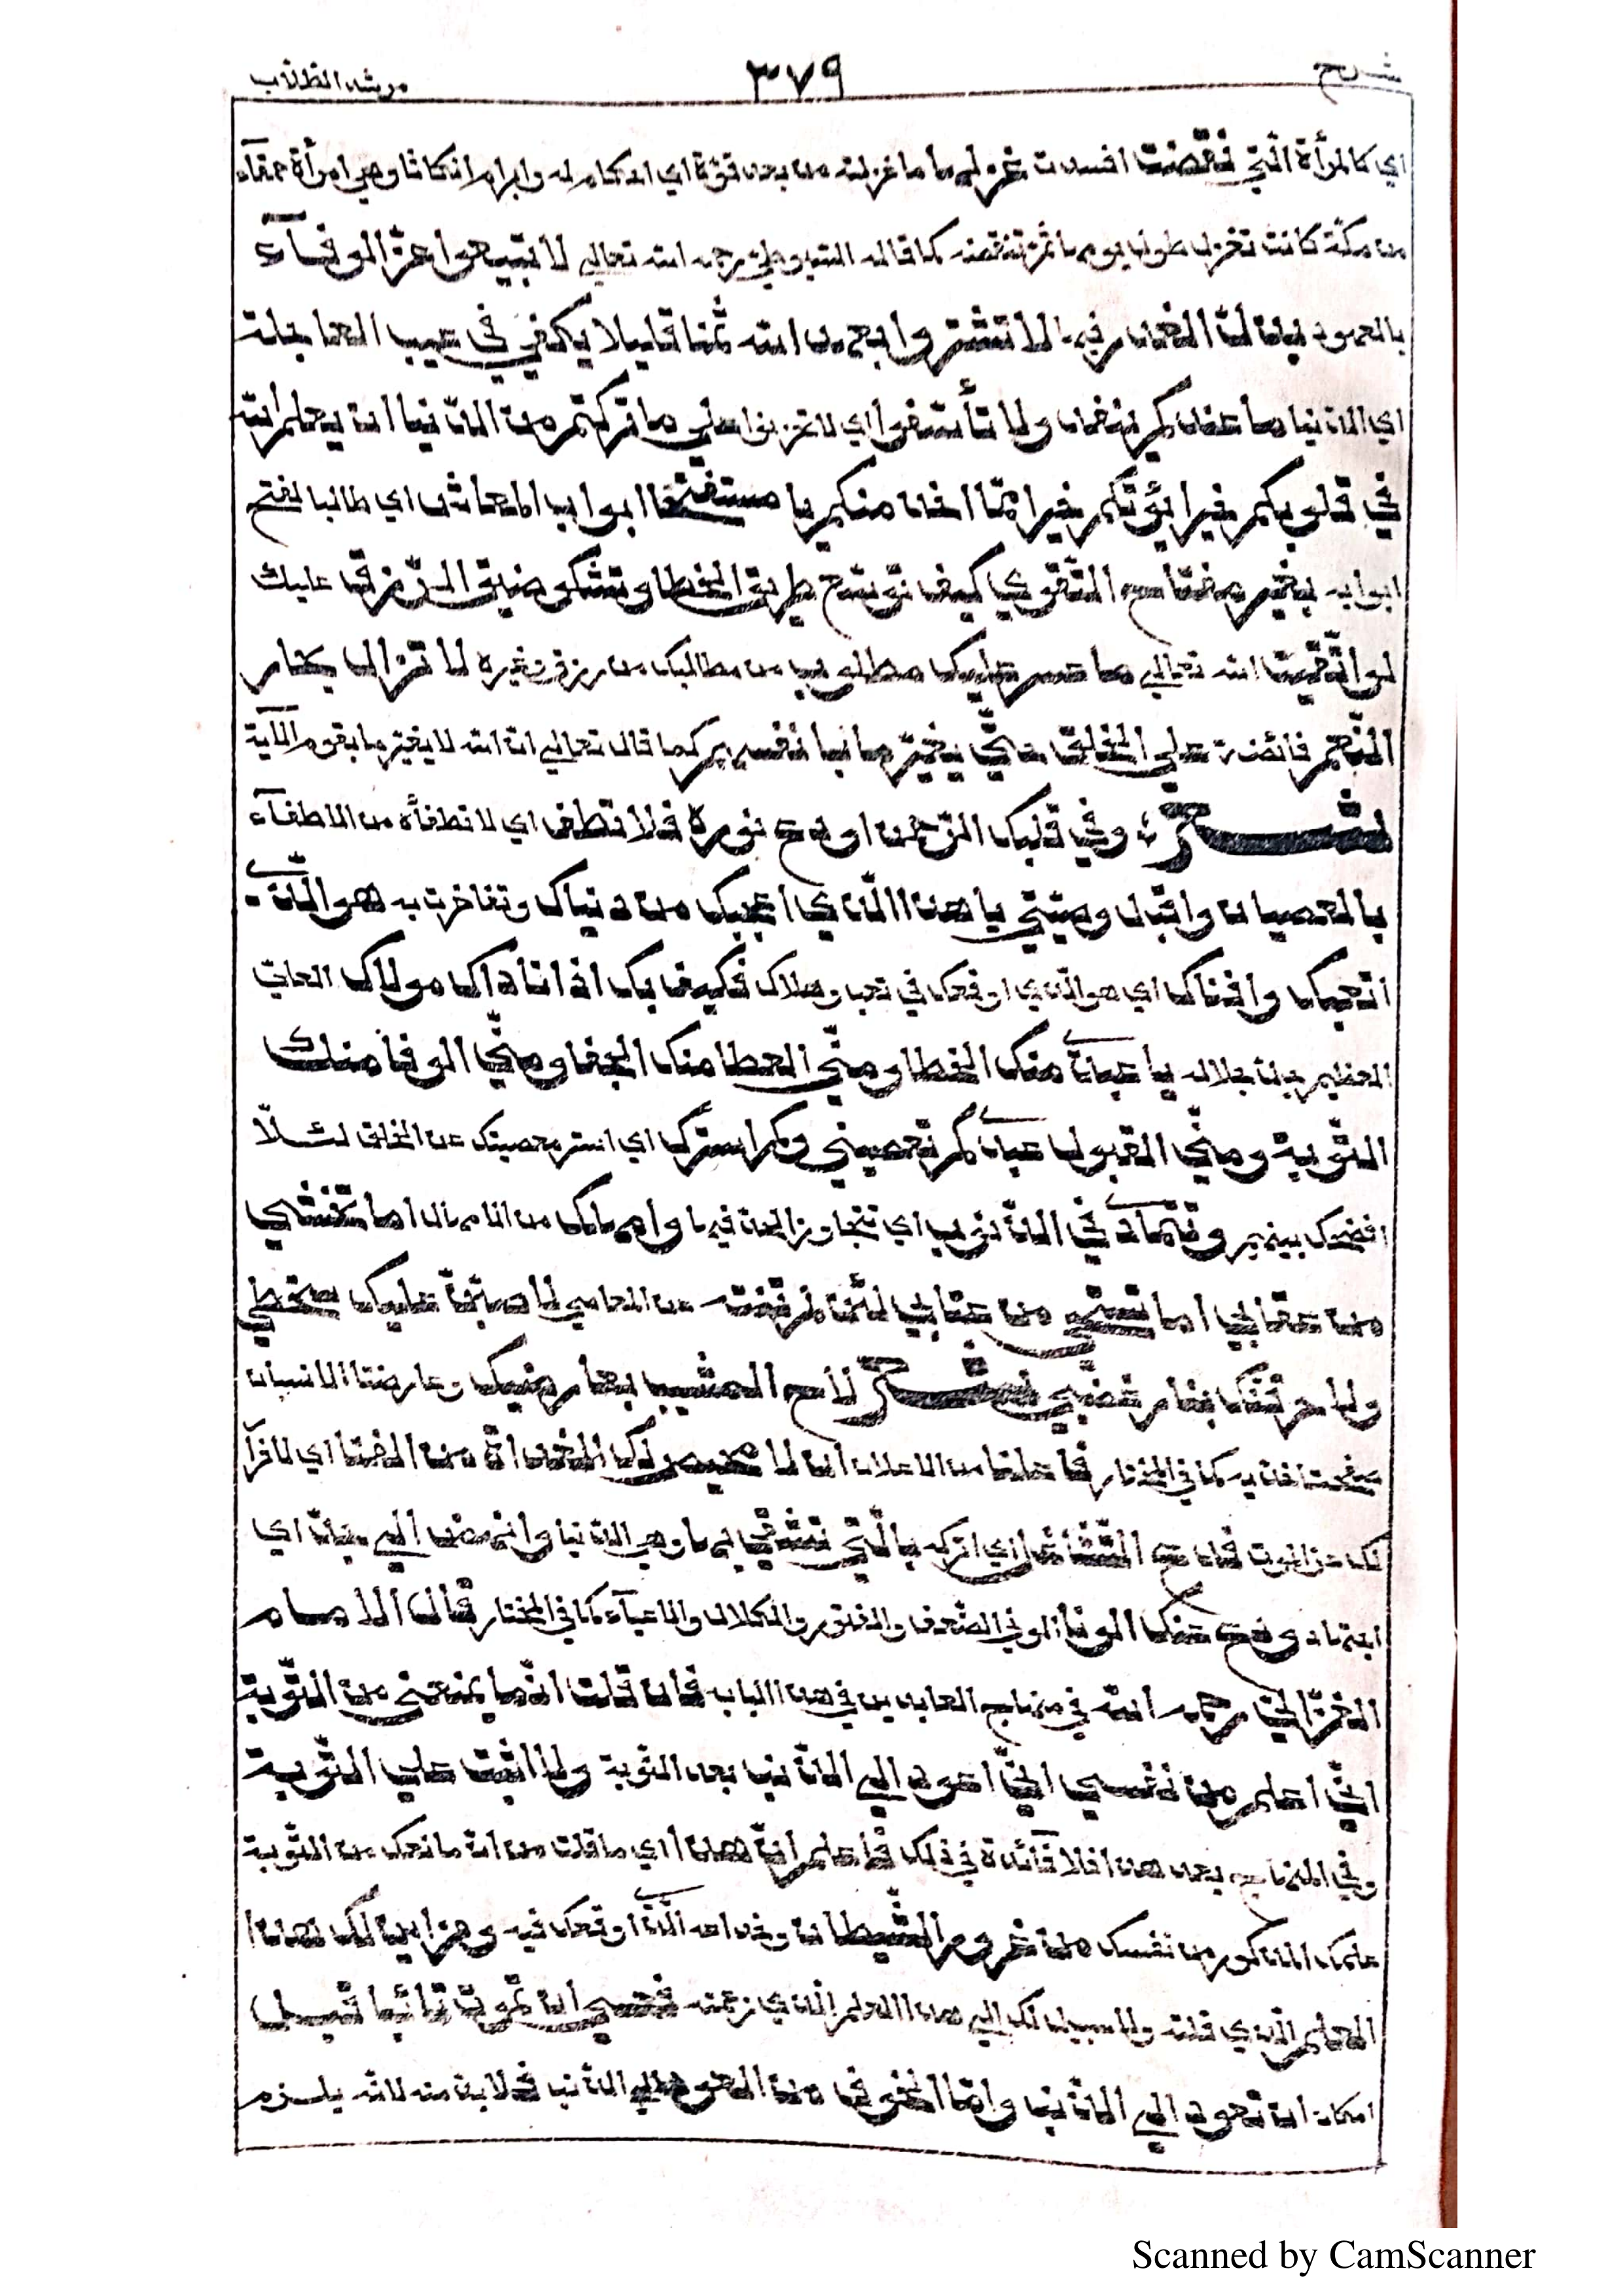 شرح
٣٧٩
مرشد الطلاب
اي كالمرأة الّتي نقضت افسدت غزلها ما غزلته من بعد قوّة اي احكام له وابرام انكاثا وهي امرأة حمقآء
من مكّة كانت تغزل طول يومها ثمّ تنقضه كما قاله السّيوطيّ رحمه الله تعالى لا تبيعوا عزّ الوفآء
بالعهود بذلّ الغدر فيها لا تشتروا بعهد الله ثمنا قليلا يكفي في عيب العاجلة
اي الدّنيا ما عندكم ينفد ولا تأسّفوا اي لا تحزنوا على ما تركتم من الدّنيا ان يعلم الله
في قلوبكم خيرا يؤتكم خيرا ممّا اخذ منكم يا مستفتحا ابواب المعاش اي طالبا لفتح
ابوابه بغير مفتاح التّقوى كيف توسّع طريق الخطا وتشكو ضيق الرّزق عليك
لو اتّقيت الله تعالى ما عسر عليك مطلوب من مطالبك من رزق وغيره لا تزال بحار
النّعم فائضة على الخلق حتّى يغيّر ما بانفسهم كما قال تعالى انّ الله لا يغيّر ما بقوم الآية
لشـــعر وفي قلبك الرّحمن اودع نوره فلا تطف اي لا تطفأه من الاطفآء
بالعصيان واقبل وصيّتي يا هذا الّذي اعجبك من دنياك وتفاخرت به هو الّذي
اتعبك وافناك اي هو الّذي اوقعك في تعب وهلاك فكيف بك اذا ناداك مولاك العليّ
العظيم جلّ جلاله يا عبدي منك الخطا ومنّي العطا منك الجفا ومنّي الوفا منك
التّوبة ومنّي القبول عبدي كم تعصيني وكم استرك اي استر معصيتك عن الخلق لئـلّا
افضحك بينهم وتتمادى في الذّنوب اي تتجاوز الحدّ فيها وامهلك من الامهال اما تخشى
من عقابي اما تستحي من عتابي لئن لم تنته عن المعاصي لاصبّنّ عليك سخطي
ولاحرقنّك بنار غضبي لشـــعر لاح المشيب بعارضيك وعارضتا الانسان
صفحتا خدّيه كما في المختار فاعلنا من الاعلان ان لا محيص لك الغداة من الفنا اي لا فرآر
لك من الموت فدع التّشاغل اي اتركه بالّتي تشقى بها وهي الدّنيا وانهض الى جدّ اي
اجتهاد ودع عنك الونا الونى الضّعف والفتور والكلال والاعيآء كما في المختار قال الامام
الغزّالي رحمه الله في منهاج العابدين في هذا الباب فان قلت انّما يمنعني من التّوبة
انّي اعلم من نفسي انّي اعود الى الذّنب بعد التّوبة ولا اثبت على التّوبة
وفي المنهاج بعد هذا فلا فائدة في ذلك فاعلم انّ هذا اي ما قلت من انّ مانعك من التّوبة
علمك المذكور من نفسك من غرور الشّيطان وخداعه الّذي اوقعك فيه ومن اين لك هذا
العلم الّذي قلته ولا سبيل لك الى هذا العلم الّذي زعمته فعسى ان تموت تائبا قبـل
امكان ان تعود الى الذّنب وامّا الخوف من العود الى الذّنب فلا بدّ منه لانّه يلـزم